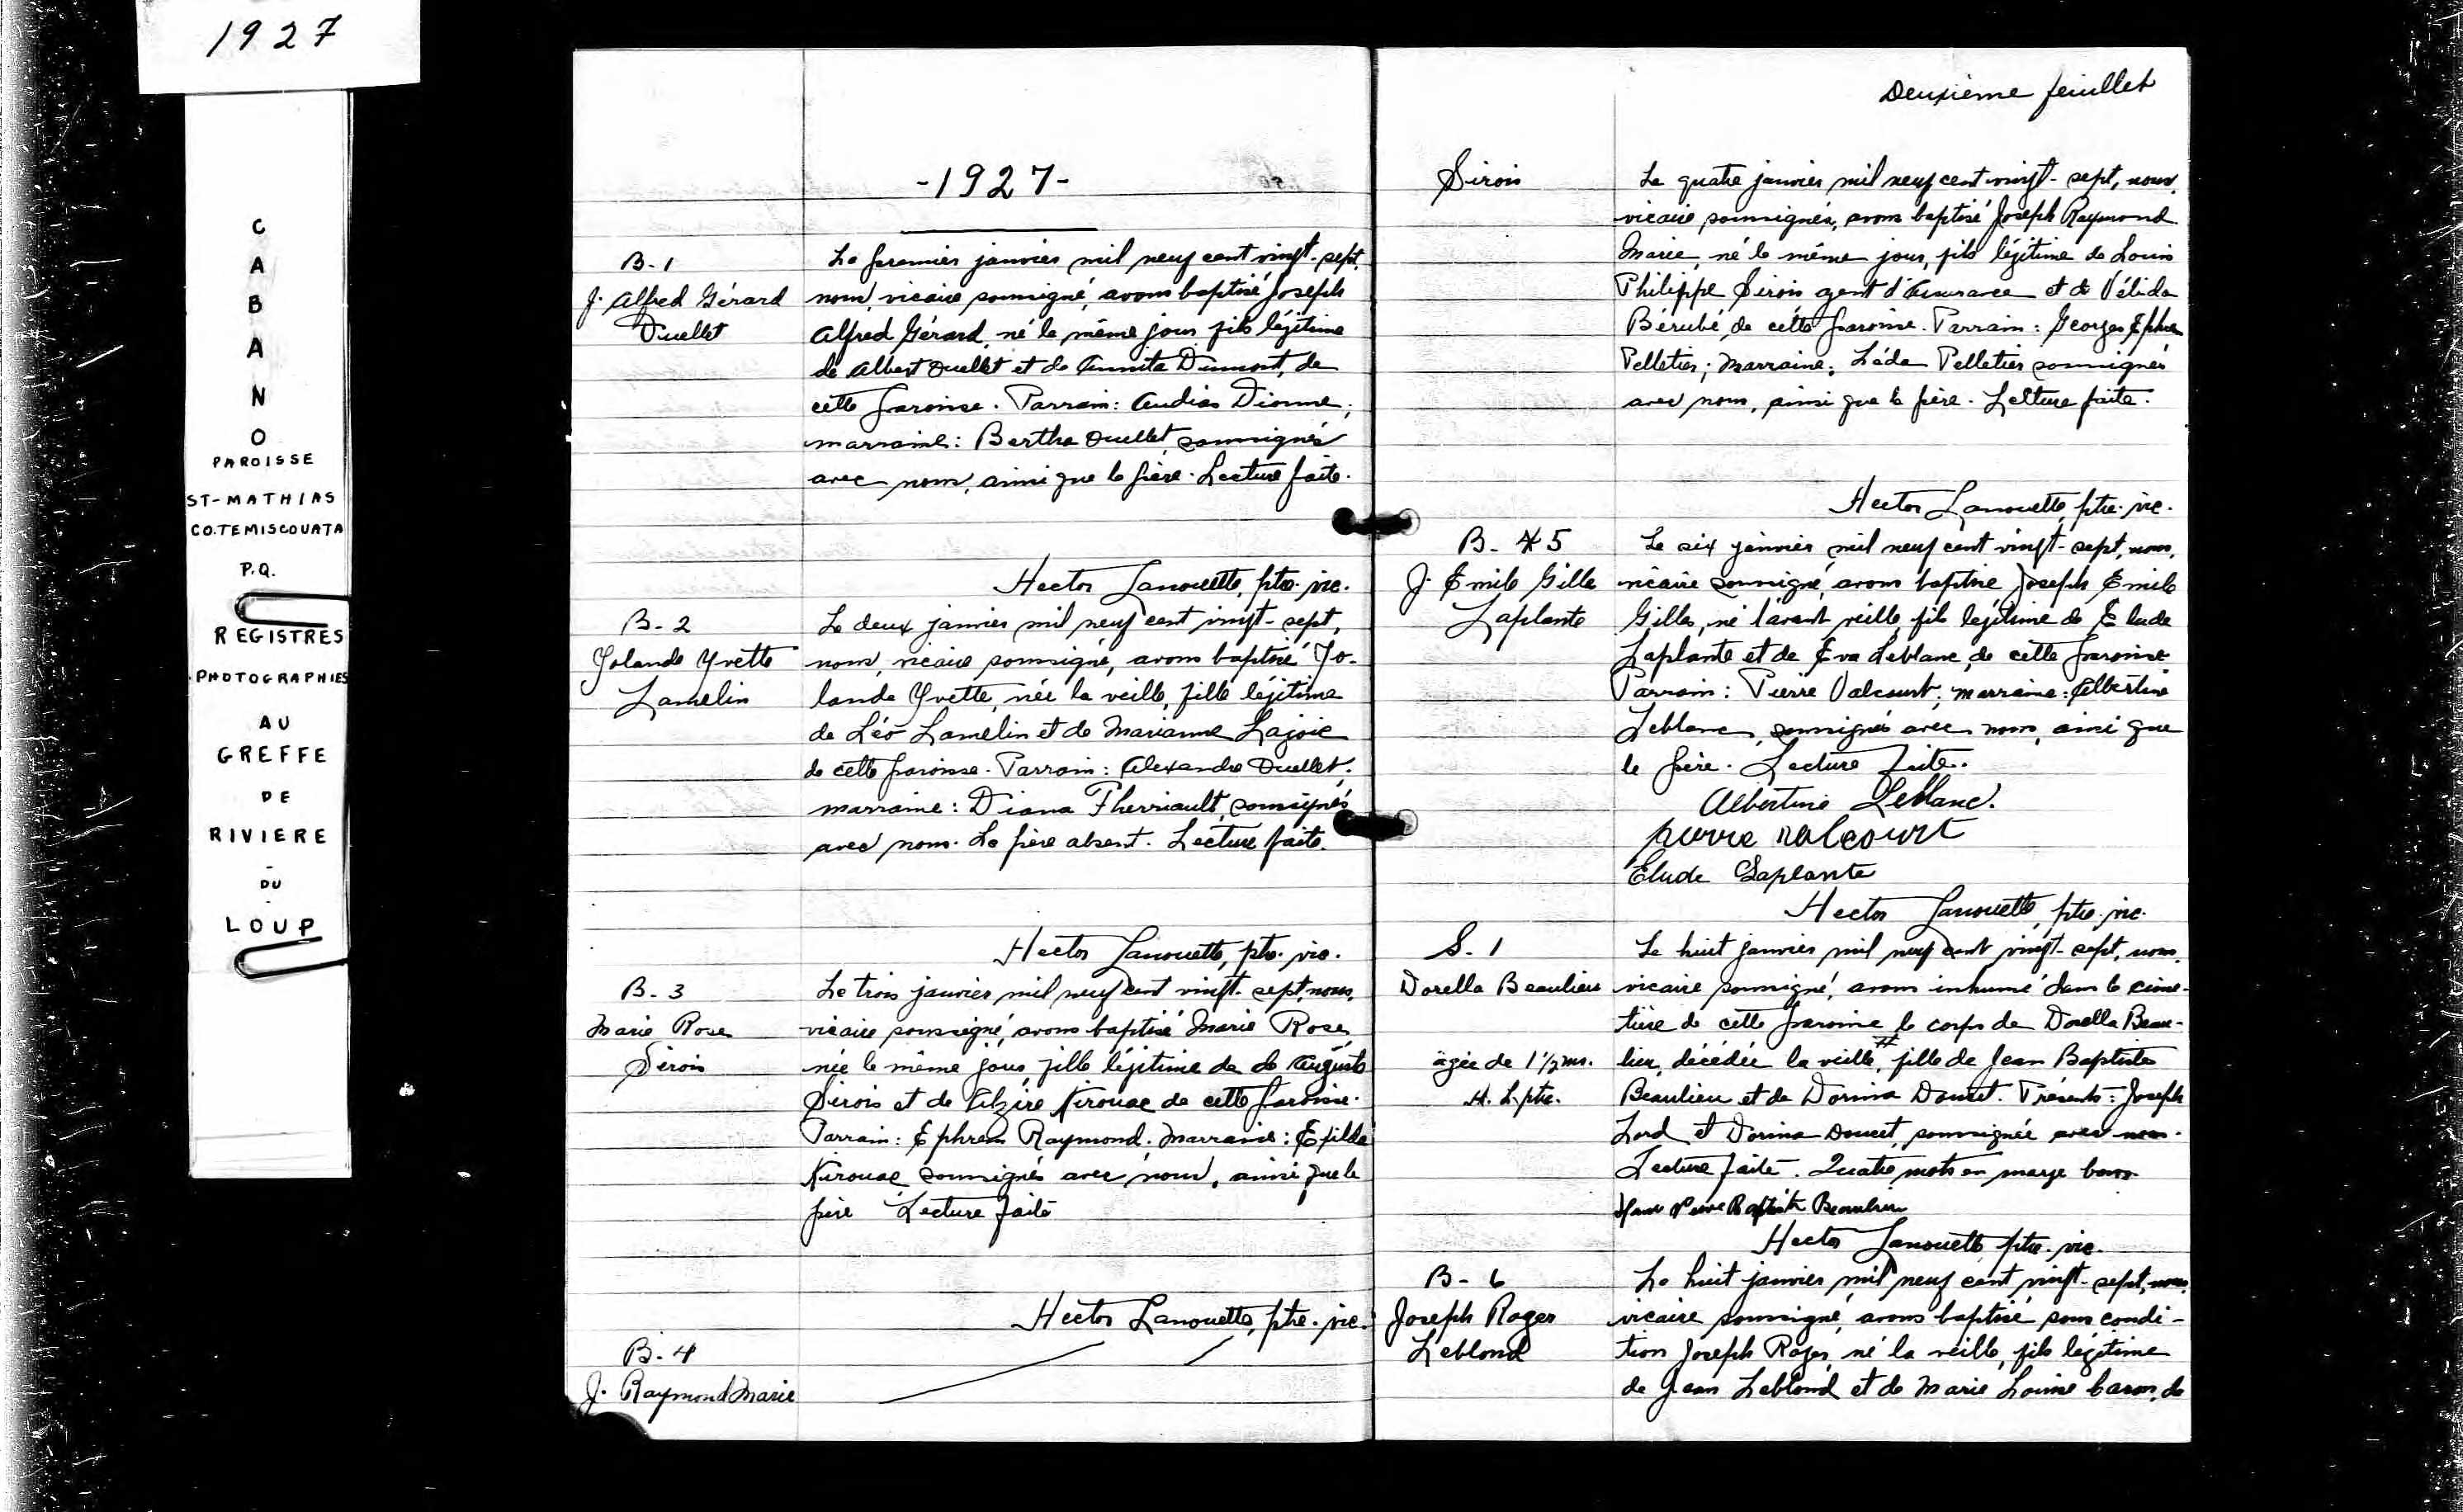 1927
C
A
B
A
N
O
PAROISSE
ST-MATHIAS
CO.TEMISCOUATA
P.Q.
REGISTRES
PHOTOGRAPHIES
AU
GREFFE
DE
RIVIERE
-
DU
-
LOUP
-1927-
B-1
J. Alfred Gérard
Ouellet
Le premier janvier mil neuf cent vingt-sept,
nous, vicaire soussigné, avons baptisé Joseph
Alfred Gérard, né le même jour fils légitime
de Albert Ouellet et de Annita Dumont, de
cette paroisse. Parrain: Audias Dionne;
marraine: Bertha Ouellet, soussignés
avec nous, ainsi que le père. Lecture faite.
Hector Lanouette, ptre. vic.
B-2
Yolande Yvette
Lamelin
Le deux janvier mil neuf cent vingt-sept,
nous, vicaire soussigné, avons baptisé Yo-
lande Yvette, née la veille, fille légitime
de Léo Lamelin et de Marianne Lajoie
de cette paroisse. Parrain: Alexandre Ouellet;
marraine: Diana Therriault, soussignés
avec nous. Le père absent. Lecture faite.
Hector Lanouette, ptre. vic.
B-3
Marie Rose
Sirois
Le trois janvier mil neuf cent vingt-sept, nous,
vicaire soussigné, avons baptisé Marie Rose,
née le même jour, fille légitime de de Auguste
Sirois et de Alzire Kirouac de cette paroisse.
Parrain: Ephrem Raymond. Marraine: Exilda
Kirouac soussignés avec nous, ainsi que le
père Lecture faite
Hector Lanouette, ptre. vic.
B-4
J. Raymond Marie
Deuxième feuillet
Sirois
Le quatre janvier mil neuf cent vingt-sept, nous,
vicaire soussigné, avons baptisé Joseph Raymond
Marie, né le même jour, fils légitime de Louis
Philippe Sirois agent d'Assurance et de Vélida
Bérubé de cette paroisse. Parrain: Georges Ephre
Pelletier; Marraine: Léda Pelletier soussignés
avec nous, ainsi que le père. Lecture faite.
Hector Lanouette, ptre. vic.
B- 5
J. Emile Gille
Laplante
Le six janvier mil neuf cent vingt-sept, nous,
vicaire soussigné, avons baptisé Joseph Emile
Gilles, né l'avant veille, fils légitime de Elude
Laplante et de Eva Leblanc, de cette paroisse
Parrain: Pierre Valcourt; marraine: Albertine
Leblanc, soussignés avec nous, ainsi que
le père. Lecture faite.
Albertine Leblanc.
pierre valcourt
Elude Laplante
Hector Lanouette, ptre. vic.
S. 1
Dorella Beaulieu
âgée de 1 1/2 ms.
H. L. ptre.
Le huit janvier mil neuf cent vingt-sept, nous,
vicaire soussigné, avons inhumé dans le cime-
tière de cette paroisse le corps de Dorella Beau-
lieu, décédée la veille, # fille de Jean Baptiste
Beaulieu et de Dorina Doucet. Présents: Joseph
Lord et Dorina Doucet, soussignée avec nous.
Lecture faite. Quatre mots en marge bons
Baptiste Beaulieu
Hector Lanouette ptre. vic.
B- 6
Joseph Roger
Leblond
Le huit janvier mil neuf cent vingt-sept, nous,
vicaire soussigné, avons baptisé sous condi-
tion Joseph Roger, né la veille, fils légitime
de Jean Leblond et de Marie Louise Caron, de